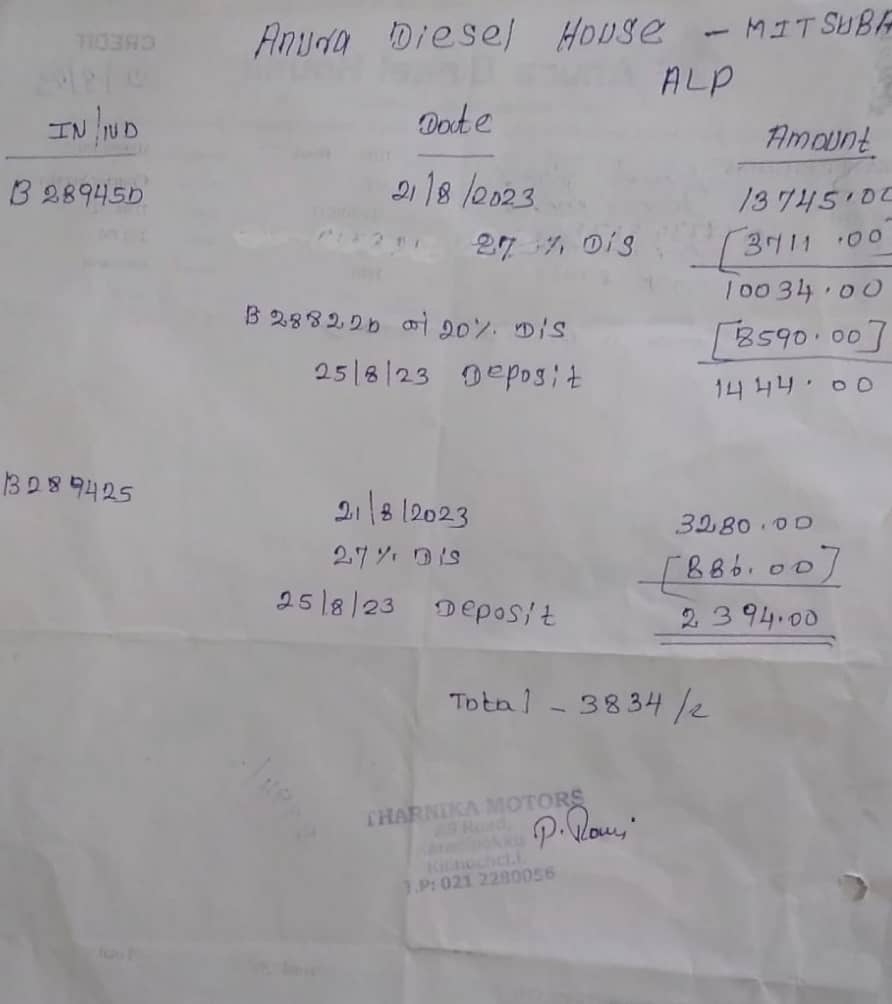 Anura Diesel House - MITSUBA
ALP
IN/NO Date Amount
B 289450 21/8/2023 13745.00
27 % Dis [3711.00
10034.00
B 288220 20% Dis [8590.00]
25/8/23 Deposit 1444.00
B289425
21/8/2023 3280.00
27% Dis [886.00]
25/8/23 Deposit 2394.00
Total - 3834/
THARNIKA MOTORS
Road,
Kilinochchi.
T.P: 021 2280056